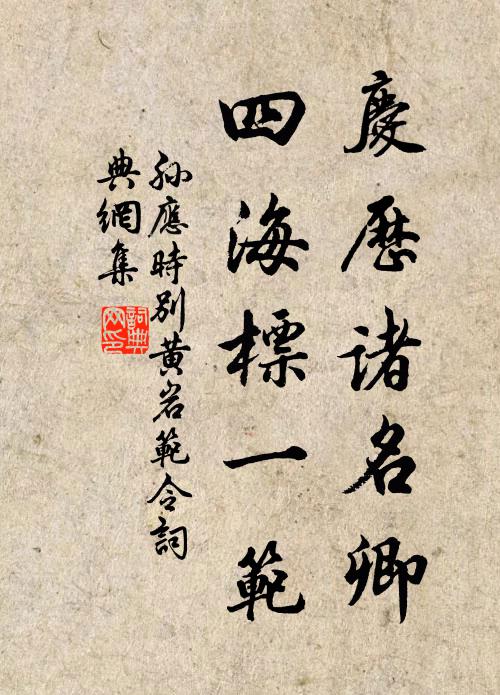 慶歷諸名卿
四海標一範
孫應時別黃岩範令詞
典網集
詞典網印